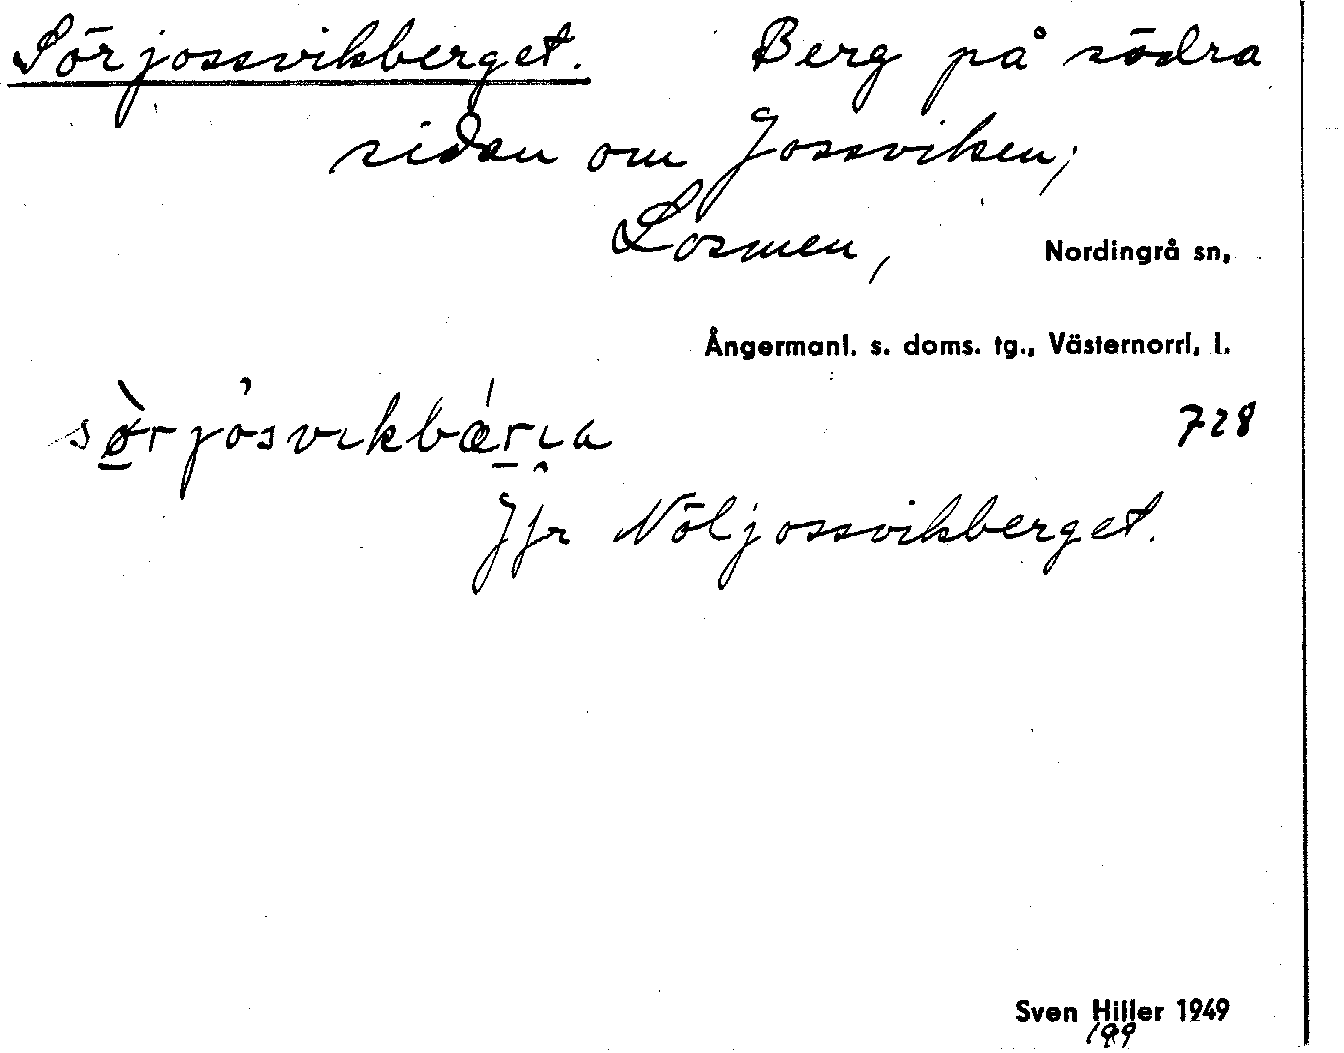 Sörjossvikberget. Berg på södra
sidan om Jossviken;
Losmen, Nordingrå sn,
Ångermanl. s. doms. tg., Västernorrl. l.
728
Jfr Nöljossvikberget.
Sven Hiller 1949
199